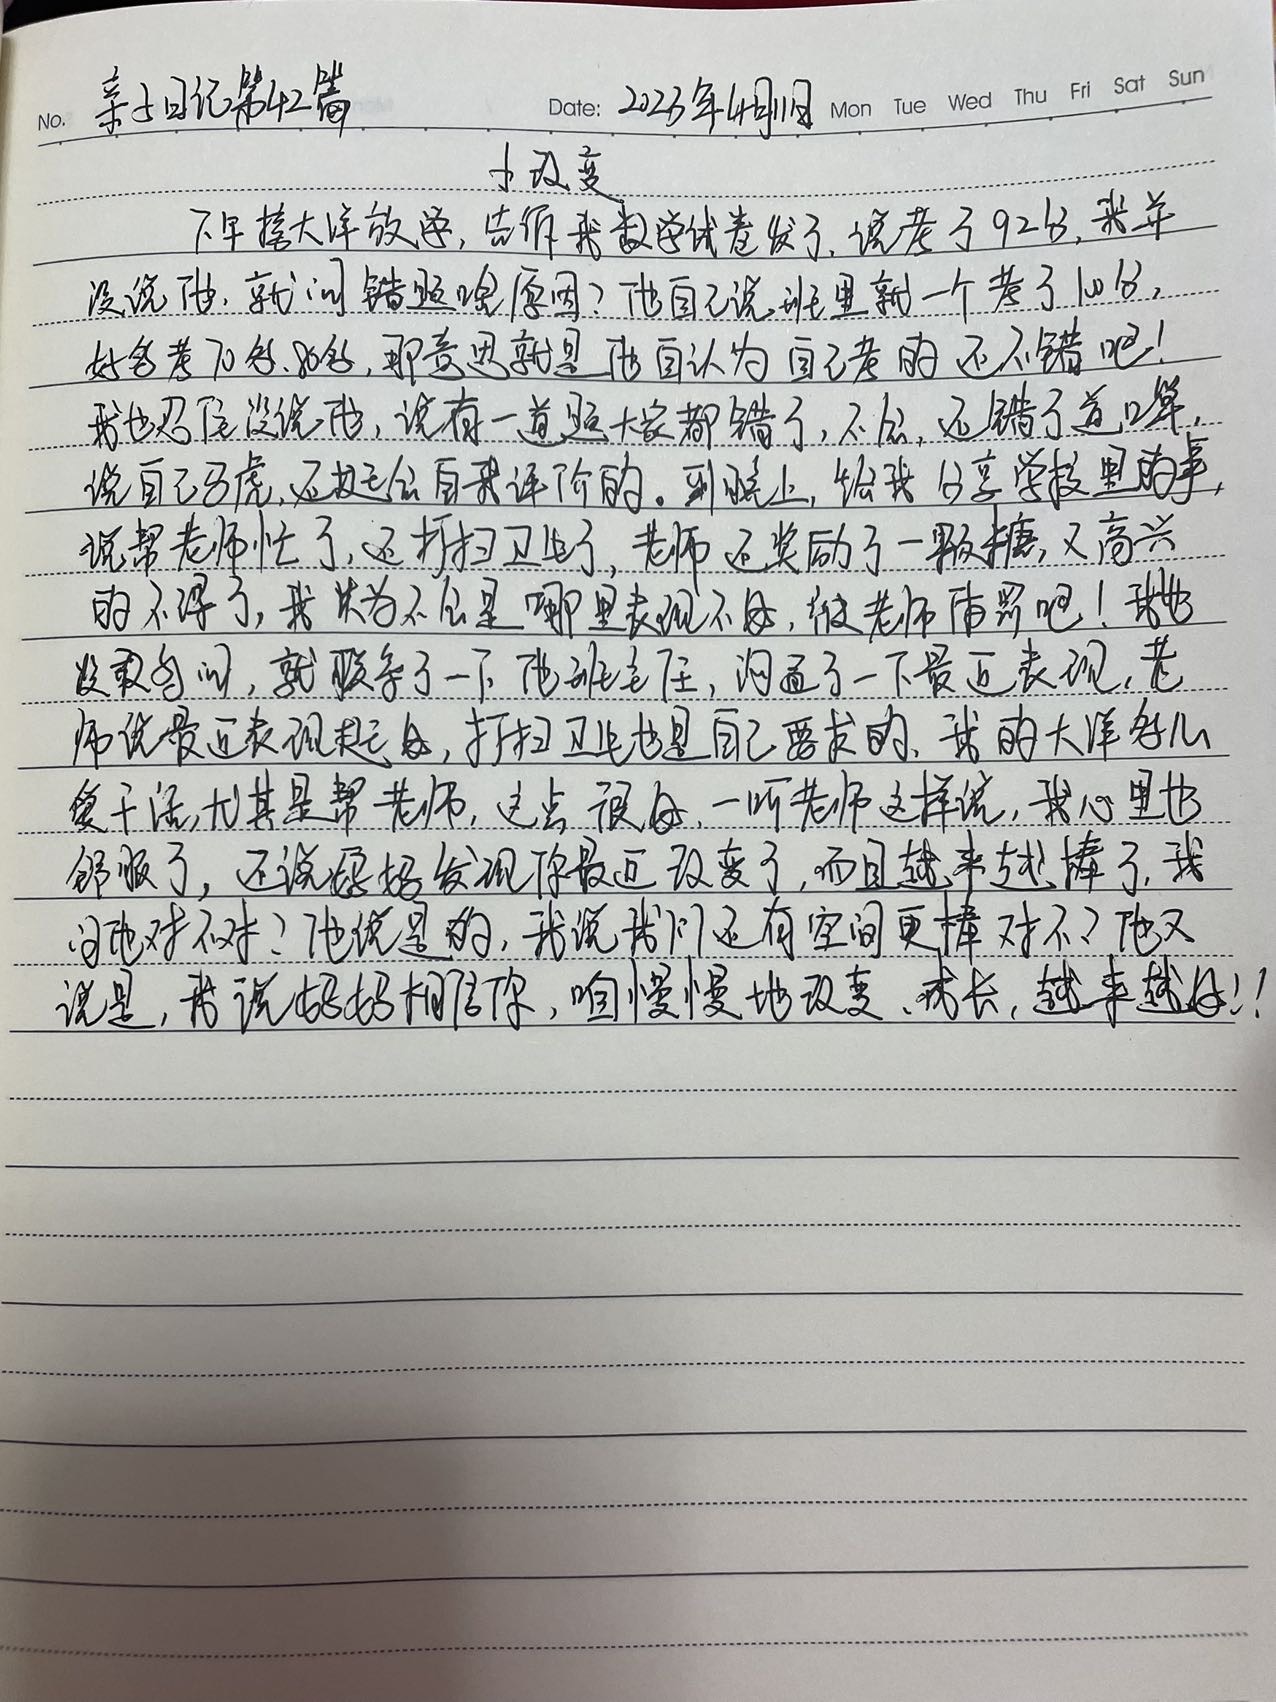 No. 亲子日记第42篇 Date: 2023年4月11日 Mon Tue Wed Thu Fri Sat Sun
小改变
下午接大洋放学,告诉我数学试卷发了,说考了92分,我并
没说他,就问错题啥原因?他自己说,班里就一个考了100分,
好多考70多、80多,那意思就是他自认为自己考的还不错吧!
我也忍住没说他,说有一道题大家都错了,不会,还错了道口算,
说自己马虎,还挺会自我评价的。到晚上,给我分享学校里的事,
说帮老师忙了,还打扫卫生了,老师还奖励了一颗糖,又高兴
的不得了,我以为不会是哪里表现不好,被老师惩罚吧!我也
没敢多问,就联系了一下他班主任,沟通了一下最近表现,老
师说最近表现挺好,打扫卫生也是自己要求的,我的大洋多儿
爱干活,尤其是帮老师,这点很好,一听老师这样说,我心里也
舒服了,还说妈妈发现你最近改变了,而且越来越棒了,我
问他对不对?他说是的,我说我们还有空间更棒对不?他又
说是,我说妈妈相信你,咱慢慢地改变、成长,越来越好!!